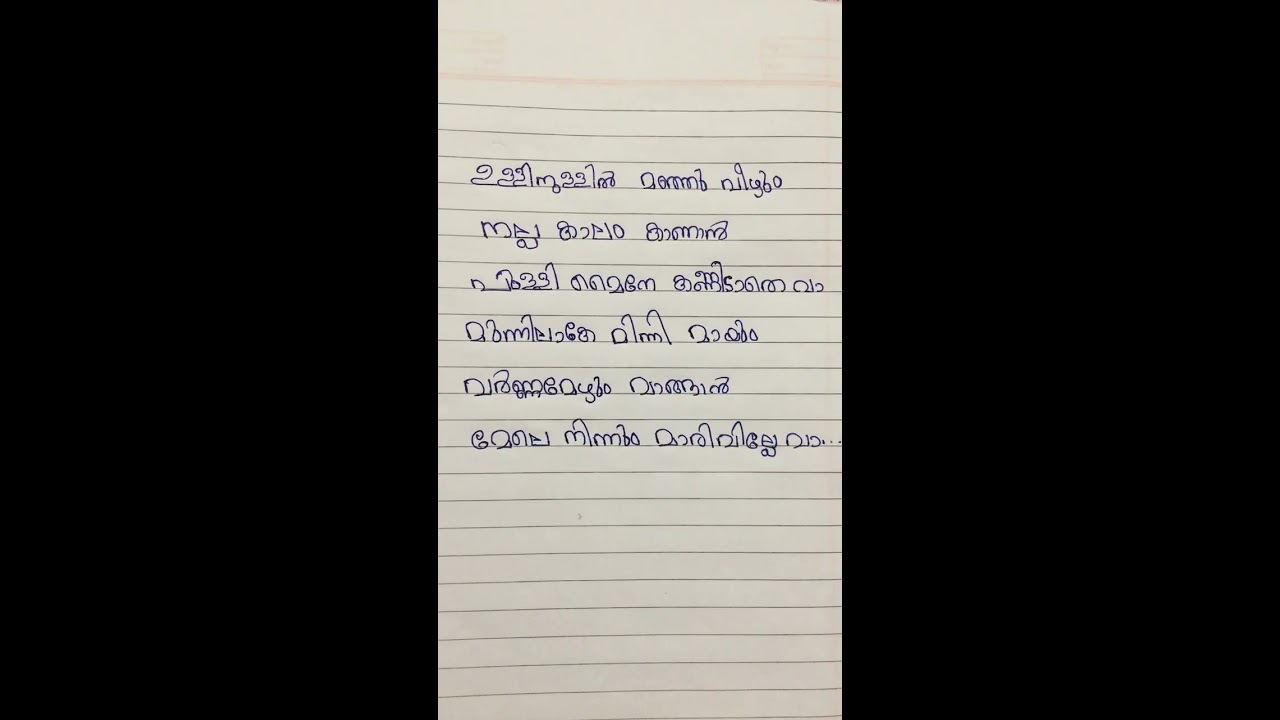 ഉള്ളിനുള്ളിൽ മഞ്ഞു വീഴും
നല്ല കാലം കാണാൻ
പുള്ളി മൈനേ കണ്ണിടാതെ വാ
മുന്നിലാകേ മിന്നി മായും
വർണ്ണമേഴും വാങ്ങാൻ
മേലെ നിന്നും മാരിവില്ലേ വാ...